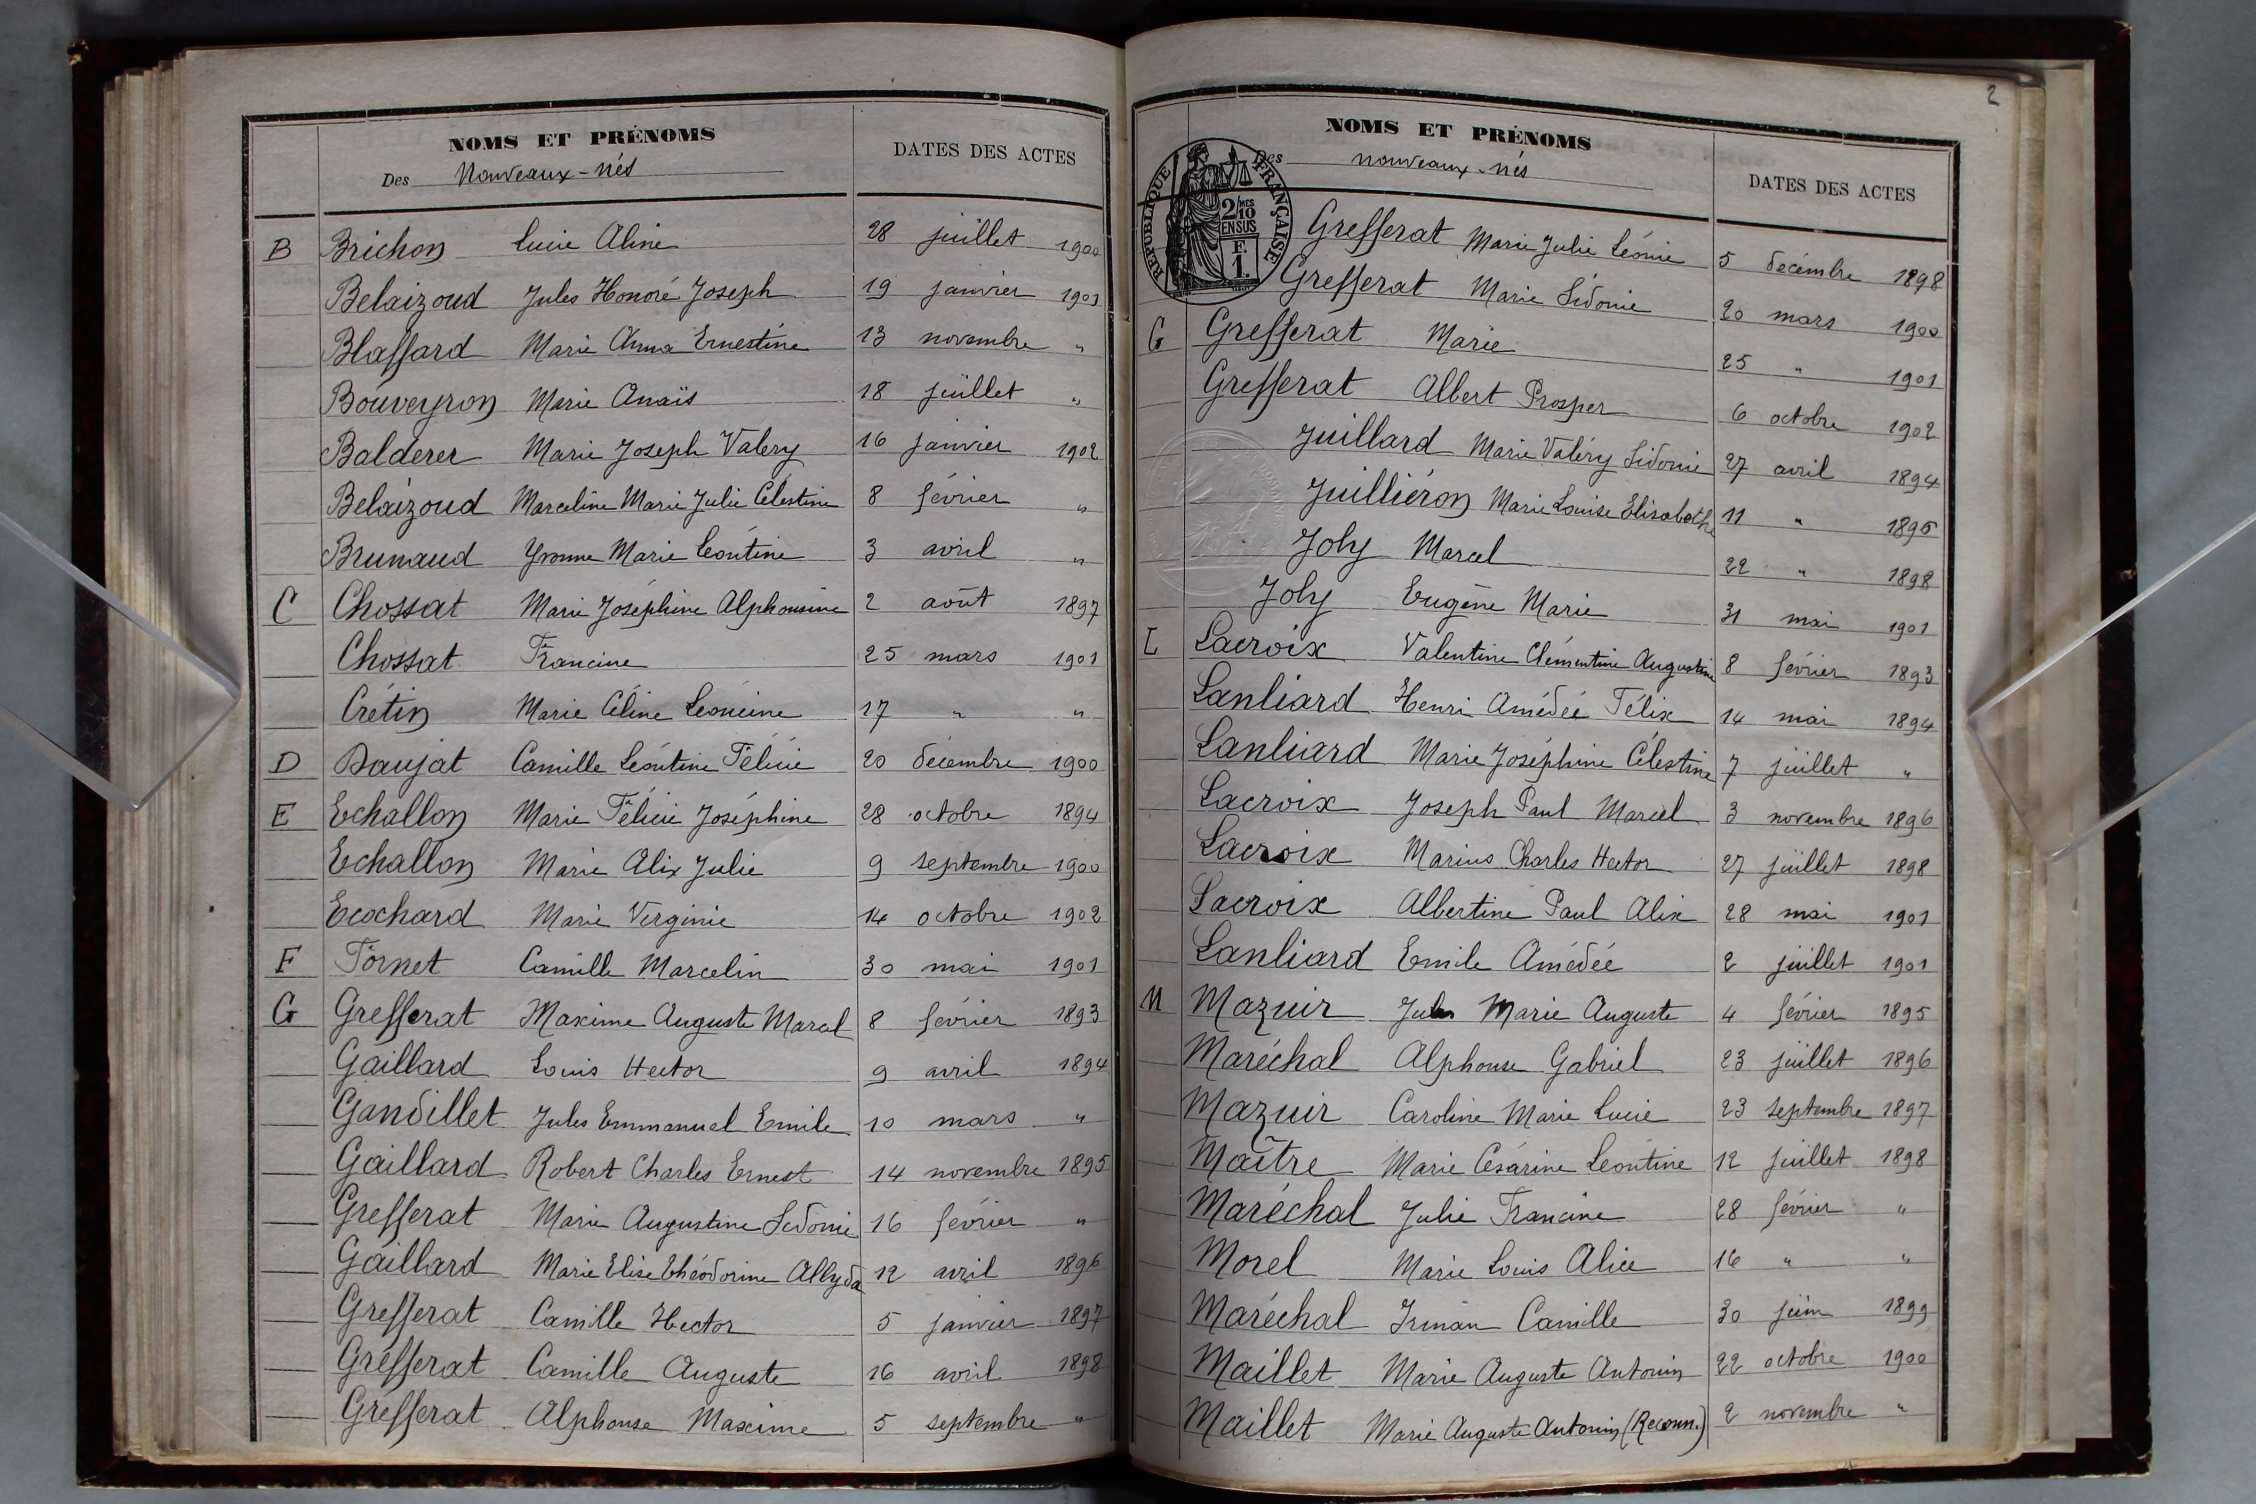 NOMS ET PRÉNOMS
DATES DES ACTES
Des Nouveaux-nés
B Brichon Lucie Aline 28 juillet 1900
Belaizoud Jules Honoré Joseph 19 janvier 1901
Blaffard Marie Anna Ernestine 13 novembre "
Bouveyron Marie Anaïs 18 juillet "
Balderer Marie Joseph Valery 16 janvier 1902
Belaizoud Marceline Marie Julie Célestine 8 février "
Brunaud Yvonne Marie Léontine 3 avril "
C Chossat Marie Joséphine Alphonsine 2 août 1897
Chossat Francine 25 mars 1901
Crétin Marie Céline Léoncine 17 " "
D Daujat Camille Léontine Félicie 20 décembre 1900
E Echallon Marie Félicie Joséphine 28 octobre 1894
Echallon Marie Alix Julie 9 septembre 1900
Ecochard Marie Virginie 14 octobre 1902
F Fornet Camille Marcelin 30 mai 1901
G Grefferat Maxime Auguste Marcel 8 février 1893
Gaillard Louis Hector 9 avril 1894
Gandillet Jules Emmanuel Emile 10 mars "
Gaillard Robert Charles Ernest 14 novembre 1895
Grefferat Marie Augustine Sidonie 16 février "
Gaillard Marie Elise Théodorine Allyda 12 avril 1896
Grefferat Camille Hector 5 janvier 1897
Grefferat Camille Auguste 16 avril 1898
Grefferat Alphonse Maxime 5 septembre "
2
NOMS ET PRÉNOMS
DATES DES ACTES
Des nouveaux-nés
RÉPUBLIQUE FRANÇAISE
2/10 MES
EN SUS
F.
1.
Grefferat Marie Julie Léonie 5 décembre 1898
Grefferat Marie Sidonie 20 mars 1900
G Grefferat Marie 25 " 1901
Grefferat Albert Prosper 6 octobre 1902
Juillard Marie Valéry Sidonie 27 avril 1894
Juilliéron Marie Louise Elisabethe 11 " 1895
Joly Marcel 22 " 1898
Joly Eugène Marie 31 mai 1901
L Lacroix Valentine Clémentine Augustine 8 février 1893
Lanliard Henri Amédée Félix 14 mai 1894
Lanliard Marie Joséphine Célestine 7 juillet "
Lacroix Joseph Paul Marcel 3 novembre 1896
Lacroix Marius Charles Hector 27 juillet 1898
Lacroix Albertine Paul Alix 28 mai 1901
Lanliard Emile Amédée 2 juillet 1901
M Mazuir Jules Marie Auguste 4 février 1895
Maréchal Alphonse Gabriel 23 juillet 1896
Mazuir Caroline Marie Lucie 23 septembre 1897
Maître Marie Césarine Léontine 12 juillet 1898
Maréchal Julie Francine 28 février "
Morel Marie Louis Alice 16 " "
Maréchal Irman Camille 30 juin 1899
Maillet Marie Auguste Antonin 22 octobre 1900
Maillet Marie Auguste Antonin (Reconn.) 2 novembre "